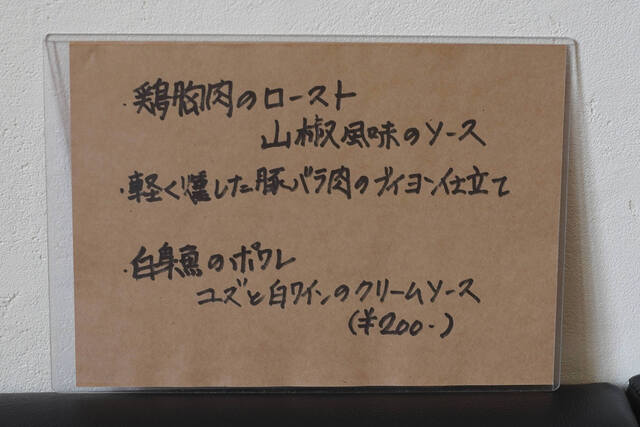 ・鶏胸肉のロースト
山椒風味のソース
・軽く燻した豚バラ肉のブイヨン仕立て
・白身魚のポワレ
ユズと白ワインのクリームソース
(¥200-)